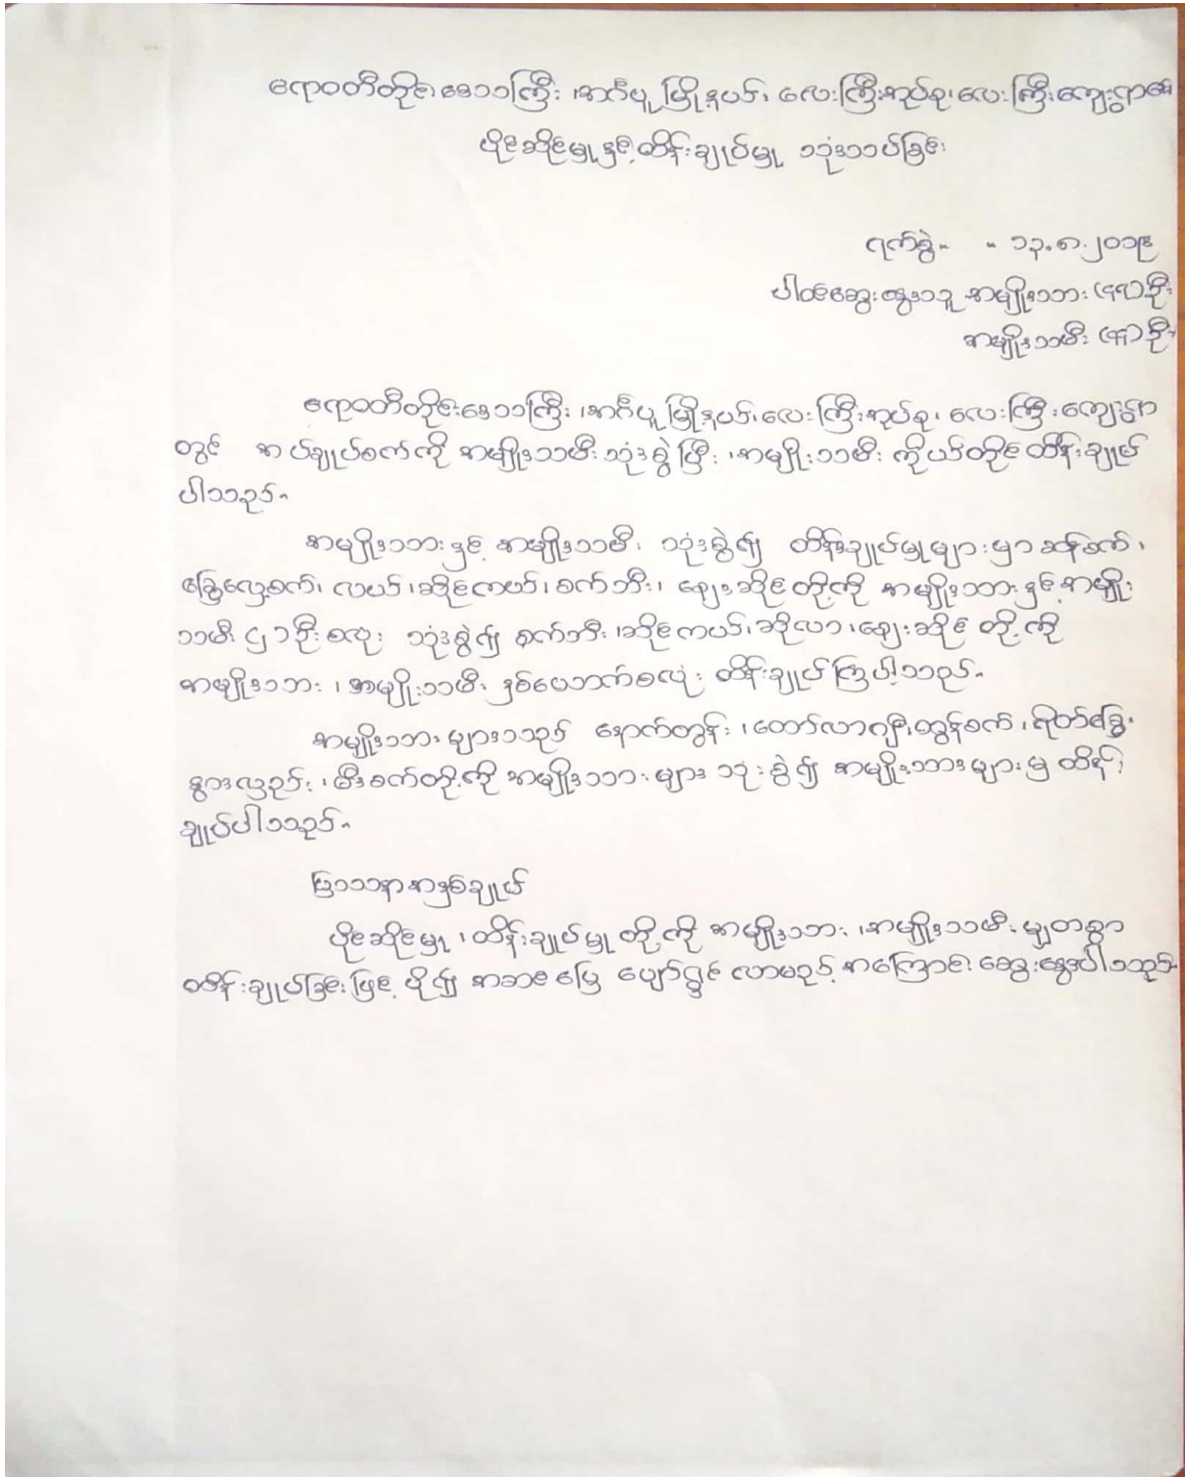 ဧရာဝတီတိုင်းဒေသကြီး၊ အင်္ဂပူမြို့နယ်၊ လေးကြီးအုပ်စု၊ လေးကြီးကျေးရွာ၏
ပိုင်ဆိုင်မှုနှင့်ထိန်းချုပ်မှု သုံးသပ်ခြင်း
ရက်စွဲ။ ။ ၁၃.၈.၂၀၁၉
ပါဝင်ဆွေးနွေးသူ အမျိုးသား ဦး
အမျိုးသမီး ဦး
ဧရာဝတီတိုင်းဒေသကြီး၊ အင်္ဂပူမြို့နယ်၊ လေးကြီးအုပ်စု၊ လေးကြီးကျေးရွာ
တွင် အပ်ချုပ်စက်ကို အမျိုးသမီးသုံးစွဲပြီး၊ အမျိုးသမီး ကိုယ်တိုင်ထိန်းချုပ်
ပါသည်။
အမျိုးသားနှင့် အမျိုးသမီး သုံးစွဲ၍ ထိန်းချုပ်မှုများမှာ ဆန်စက်၊
ခြွေလှေ့စက်၊ လယ်၊ ဆိုင်ကယ်၊ စက်ဘီး၊ ဈေးဆိုင်တို့ကို အမျိုးသားနှင့်အမျိုး
သမီး ၄၁ဦးစလုး သုံးစွဲ၍ စက်ဘီး၊ ဆိုင်ကယ်၊ ဆိုလာ၊ ဈေးဆိုင် တို့ကို
အမျိုးသား၊ အမျိုးသမီး နှစ်ယောက်စလုံး ထိန်းချုပ်ကြပါသည်။
အမျိုးသားများသည် နောက်တွန်း၊ ထော်လာဂျီ၊ ထွန်စက်၊ ရိတ်ခြွေ၊
နွားလှည်း၊ မီးစက်တို့ကို အမျိုးသားများ သုံးစွဲ၍ အမျိုးသားများမှ ထိန်း
ချုပ်ပါသည်။
ပြဿနာအနှစ်ချုပ်
ပိုင်ဆိုင်မှု၊ ထိန်းချုပ်မှုတို့ကို အမျိုးသား၊ အမျိုးသမီးမျှတစွာ
ထိန်းချုပ်ခြင်းဖြင့် ပို၍ အဆင်ပြေ ပျော်ရွှင်လာမည့်အကြောင်း ဆွေးနွေးပါသည်။